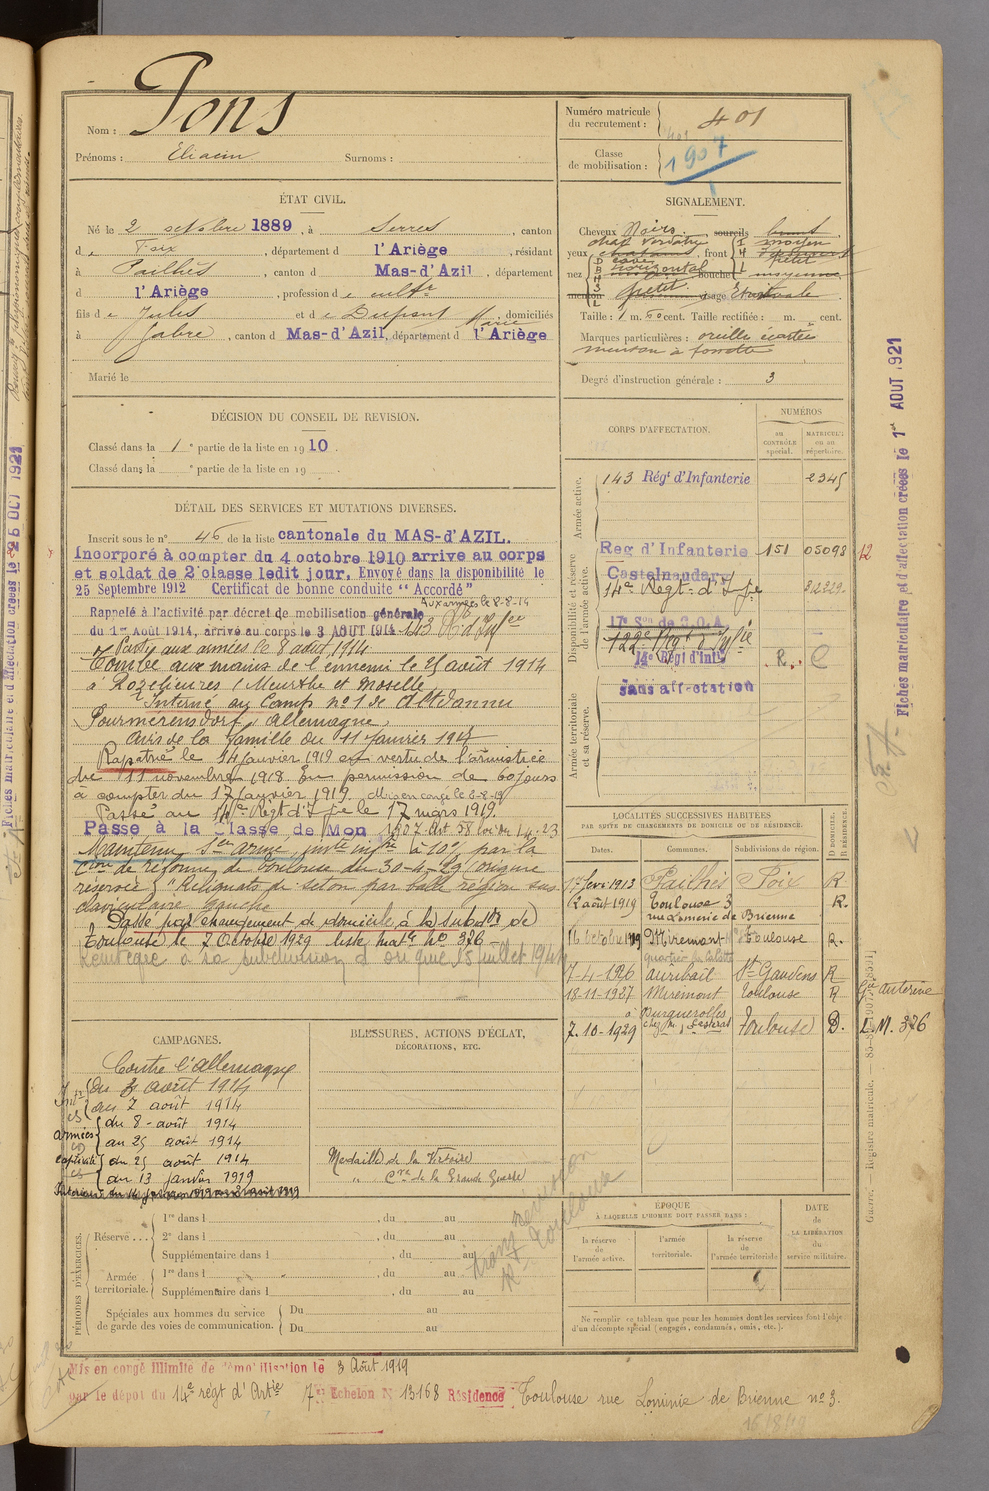 Nom : Pons
Prénoms : Eliacin Surnoms :
Numéro matricule du recrutement : 401
Classe de mobilisation : 1907
ÉTAT CIVIL.
Né le 2 octobre 1889, à Serres, canton
de Foix, département d l'Ariège, résidant
à Pailhès, canton d Mas-d'Azil, département
d l'Ariège, profession de cultr
fils de Jules et de Dupont Marie, domiciliés
à Gabre, canton d Mas-d'Azil, département d l'Ariège
Marié le
SIGNALEMENT.
Cheveux Noirs sourcils bruns
yeux chat. verdâtre, front moyen
nez horizontal bouche moyenne
menton petit visage
Taille : 1 m. 60 cent. Taille rectifiée : m. cent.
Marques particulières : oreilles écartées
menton à fossette
Degré d'instruction générale : 3
DÉCISION DU CONSEIL DE REVISION.
Classé dans la 1e partie de la liste en 1910.
Classé dans la e partie de la liste en 19
DÉTAIL DES SERVICES ET MUTATIONS DIVERSES.
Inscrit sous le n° 46 de la liste cantonale du MAS-d'AZIL.
Incorporé à compter du 4 octobre 1910 arrive au corps
et soldat de 2e classe ledit jour. Envoyé dans la disponibilité le
25 Septembre 1912 Certificat de bonne conduite "Accordé"
Aux armées le 8-8-14
Rappelé à l'activité par décret de mobilisation générale
du 1er Août 1914, arrivé au corps le 3 AOUT 1914 143 Rt d'Infie
Parti aux armées le 8 août 1914
Tombé aux mains de l'ennemi le 25 août 1914
à Rozelieures (Meurthe et Moselle
Interné au Camp n° 1 de Altdamm
Pourmérensdorf, Allemagne,
Avis de la famille du 11 Janvier 191
Rapatrié le 14 janvier 1919 en vertu de l'armistice
du 11 novembre 1918. En permission de 60 jours
à compter du 17 janvier 1919. Mis en congé le 2-8-19
Passé au 14e Régt d'Infie le 17 mars 1919.
Passé à la Classe de Mon 1907 Art 58 loi du 1-4-23
Maintenu Ser armé, invté infre à 10% par la
Cion de réforme de Toulouse du 30-4-29 (origine
réservée) "Reliquats de séton par balle région sus
claviculaire gauche
Passé par changement de domicile à la subdon de
Toulouse le 7 Octobre 1929 liste matle N° 376
Réintégré à sa subdivision d'origine 15 juillet 1941
CORPS D'AFFECTATION.
NUMÉROS
au CONTRÔLE spécial.
MATRICULE ou au répertoire.
Armée active.
143 Régt d'Infanterie 2345
Disponibilité et réserve de l'armée active.
Reg d'Infanterie 151 05098 12
Castelnaudary
14e Régt d'Infie
17e Son de C.O.A.
122e Régt d'Infie
14e Régt d'Infie
R. C
Armée territoriale et sa réserve.
sans affectation
LOCALITÉS SUCCESSIVES HABITÉES
PAR SUITE DE CHANGEMENTS DE DOMICILE OU DE RÉSIDENCE.
Dates. Communes. Subdivisions de région. D DOMICILE. R RÉSIDENCE.
1er fevr 1913 Pailhès Foix R
12 août 1919 Toulouse 3 R.
rue Lomenie de Brienne
16 octobre 1919 Miremont Toulouse R.
7-4-1926 Auribail St Gaudens R
18-11-1927 Miremont Toulouse R Gde Auterive
à Purguerolles
7.10-1929 chez Mr Toulouse D. L.M. 376
CAMPAGNES.
Contre l'Allemagne
Intr du 3 août 1914
au 7 août 1914
armées du 8 août 1914
au 25 août 1914
captivité du 25 août 1914
au 13 janvier 1919
Intérieur du 14 janvier 1919 au 2 août 1919
BLESSURES, ACTIONS D'ÉCLAT,
DÉCORATIONS, ETC.
Médaille de la Victoire
" Cve de la Grande Guerre
PÉRIODES D'EXERCICES.
Réserve... 1re dans l , du au
2e dans l , du au
Supplémentaire dans l , du au
Armée territoriale. 1re dans l , du au
Supplémentaire dans l , du au
Spéciales aux hommes du service de garde des voies de communication. Du au
Du au
ÉPOQUE
A LAQUELLE L'HOMME DOIT PASSER DANS :
la réserve de l'armée active.
l'armée territoriale.
la réserve de l'armée territoriale
DATE de LA LIBÉRATION du service militaire.
Ne remplir ce tableau que pour les hommes dont les services font l'objet
d'un décompte spécial (engagés, condamnés, omis, etc.).
Mis en congé illimité de démobilisation le 3 Août 1919
par le dépôt du 14e régt d'Artie 7e Echelon N° 13168 Résidence Toulouse rue Loménie de Brienne n° 3.
Fiches matriculaire et d'affectation créées le 1er AOUT 1921
Fiches matriculaire et d'affectation créées le 25 OCT 1921
Guerre. — Registre matricule.